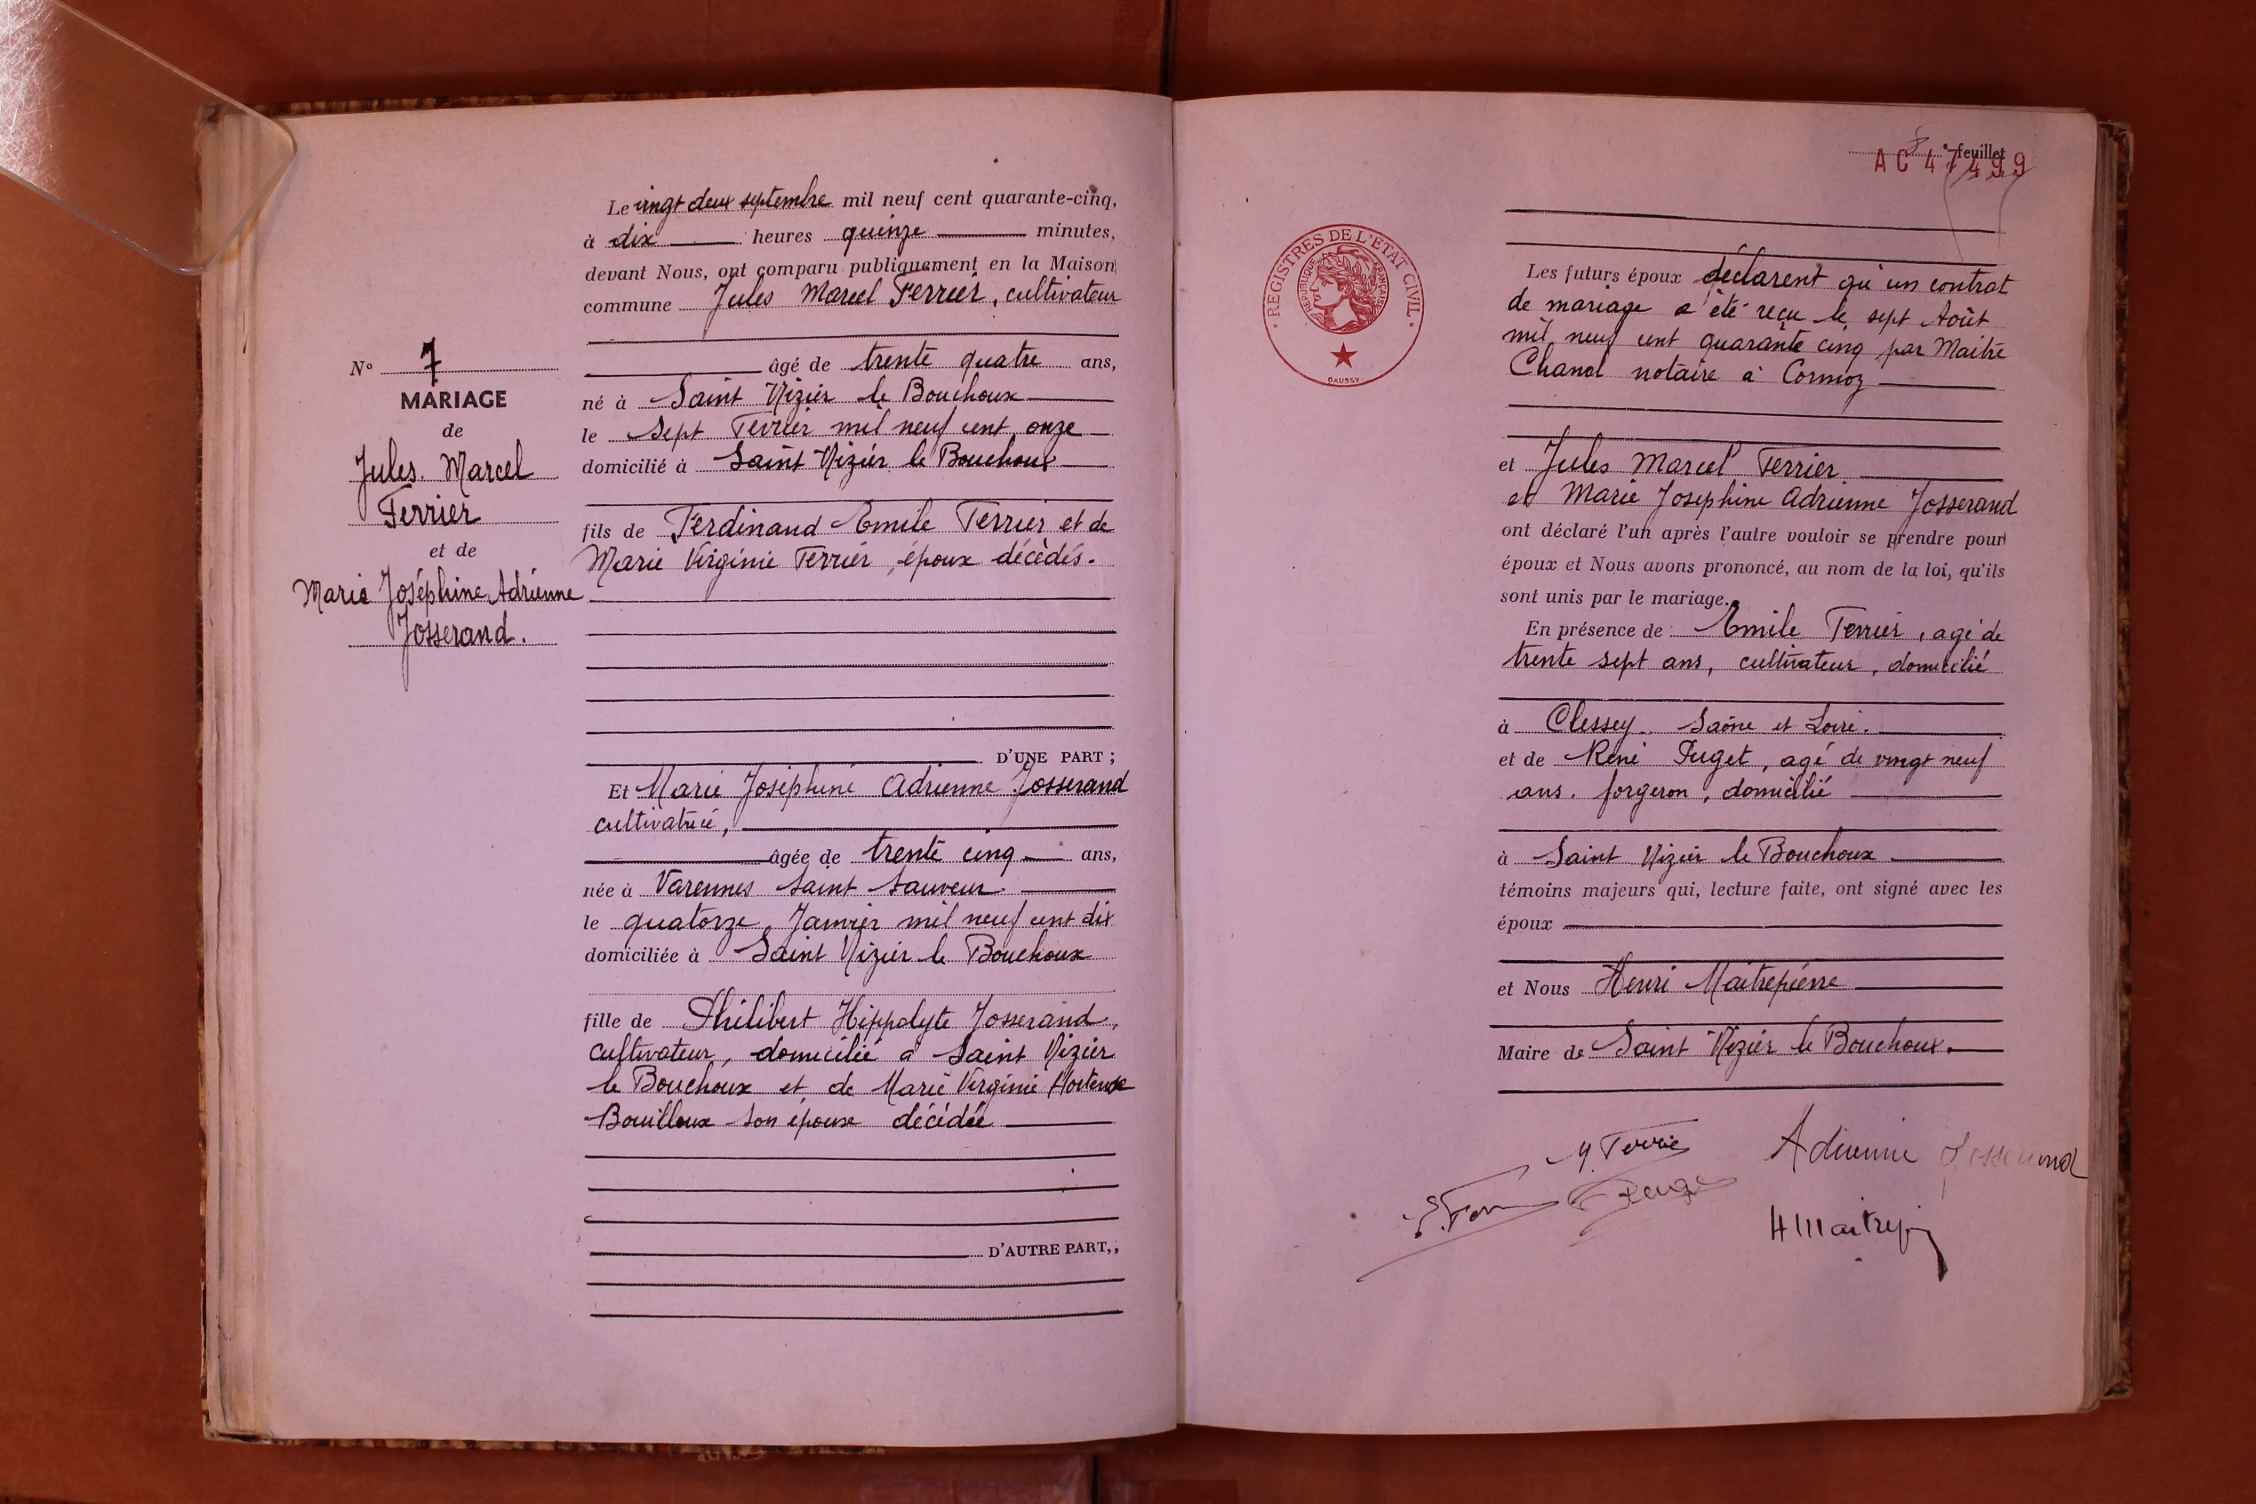 Le vingt deux septembre mil neuf cent quarante-cinq,
à dix heures quinze minutes,
devant Nous, ont comparu publiquement en la Maison
commune Jules Marcel Ferrier, cultivateur
N° 7
MARIAGE
de
Jules Marcel
Ferrier
et de
Marie Joséphine Adrienne
Josserand.
âgé de trente quatre ans,
né à Saint Nizier le Bouchoux
le sept Février mil neuf cent onze
domicilié à Saint Nizier le Bouchoux
fils de Ferdinand Emile Ferrier et de
Marie Virginie Ferrier, époux décédés.
D'UNE PART ;
Et Marie Joséphine Adrienne Josserand
cultivatrice,
âgée de trente cinq ans,
née à Varennes Saint Sauveur.
le quatorze Janvier mil neuf cent dix
domiciliée à Saint Nizier le Bouchoux
fille de Philibert Hippolyte Josserand,
cultivateur, domicilié à Saint Nizier
le Bouchoux et de Marie Virginie Hortense
Bouilloux son épouse décédée
D'AUTRE PART,,
feuillet
AC 47499
REGISTRES DE L'ETAT CIVIL
REPUBLIQUE FRANÇAISE
DAUSSY
Les futurs époux déclarent qu'un contrat
de mariage a été reçu le sept Août
mil neuf cent quarante cinq par Maitre
Chanel notaire à Cormoz
et Jules Marcel Ferrier
et Marie Josephine Adrienne Josserand
ont déclaré l'un après l'autre vouloir se prendre pour
époux et Nous avons prononcé, au nom de la loi, qu'ils
sont unis par le mariage.
En présence de Emile Ferrier, agé de
trente sept ans, cultivateur, domicilié
à Clessey Saône et Loire.
et de René Puget, agé de vingt neuf
ans. forgeron, domicilié
à Saint Nizier le Bouchoux
témoins majeurs qui, lecture faite, ont signé avec les
époux
et Nous Henri Maitrepierre
Maire de Saint Nizier le Bouchoux.
Adrienne Josserand